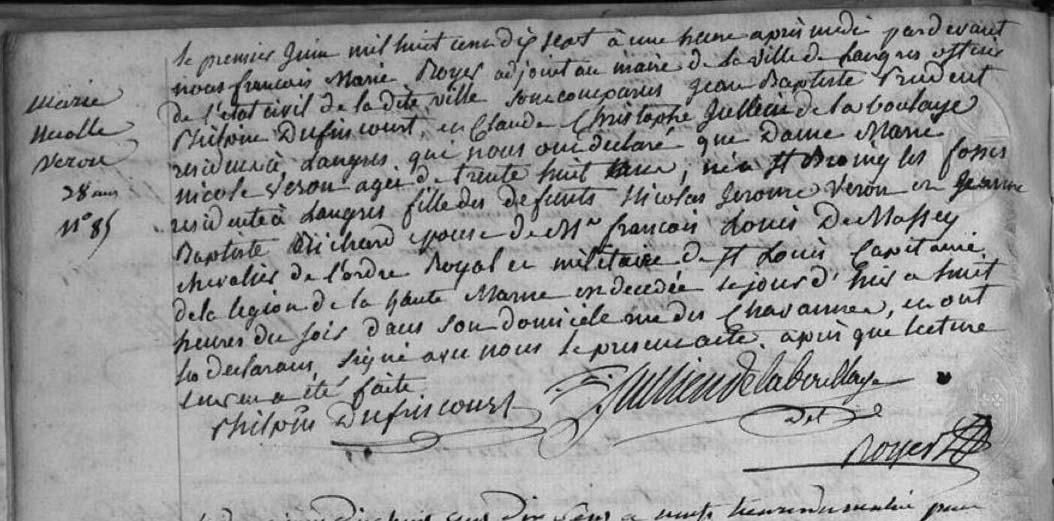 Marie
Nicolle
Veron
28 ans
N° 85
le premier Juin mil huit cent dix sept à une heure après midi pardevant
nous françois Marie Royer adjoint au maire de la ville de Langres officier
de l'état civil de la dite ville sont comparus Jean Baptiste Prudent
Philpin Dufriscourt, et Claude Christophe Jullien de la boulaye
residents à Langres qui nous ont declaré que Dame Marie
Nicole Veron agée de trente huit ans, née à St Broing les fosses
residente à Langres fille des defunts Nicolas Jerome Veron et Jeanne
Baptiste Richard epouse de Mr françois Louis De Massey
chevalier de l'ordre Royal et militaire de St Louis Capitaine
de la legion de la haute Marne est decedée le jour d'hier a huit
heures du soir dans son domicile rue des Chavannes, et ont
les declarans signé avec nous le present acte. après que lecture
leur en a été faite
Philpin Dufriscourt Jullien de la boullaye
Royer